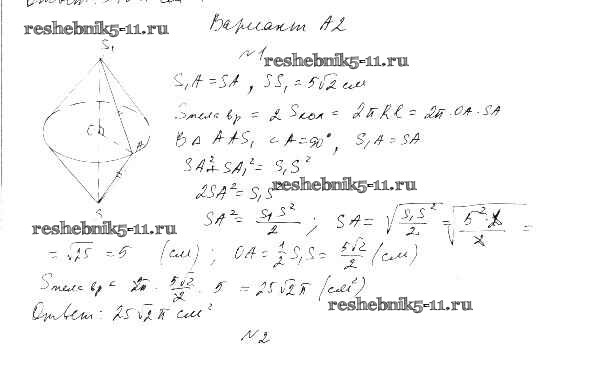 reshebnik5-11.ru
Вариант А2
№1
reshebnik5-11.ru
S₁
S₁A = SA , SS₁ = 5√2 см
Sтела вр = 2 Sкон = 2πRl = 2π·OA·SA
В △ ASS₁ ∠A=90°, S₁A = SA
SA² + SA₁² = S₁S²
2SA² = S₁S²
reshebnik5-11.ru
SA² = S₁S²/2 ; SA = √(S₁S²/2) = √(5²·2/2) =
reshebnik5-11.ru
= √25 = 5 (см) ; OA = 1/2 S₁S = 5√2/2 (см)
Sтела вр = 2π · 5√2/2 · 5 = 25√2π (см²)
reshebnik5-11.ru
Ответ: 25√2 π см²
№2